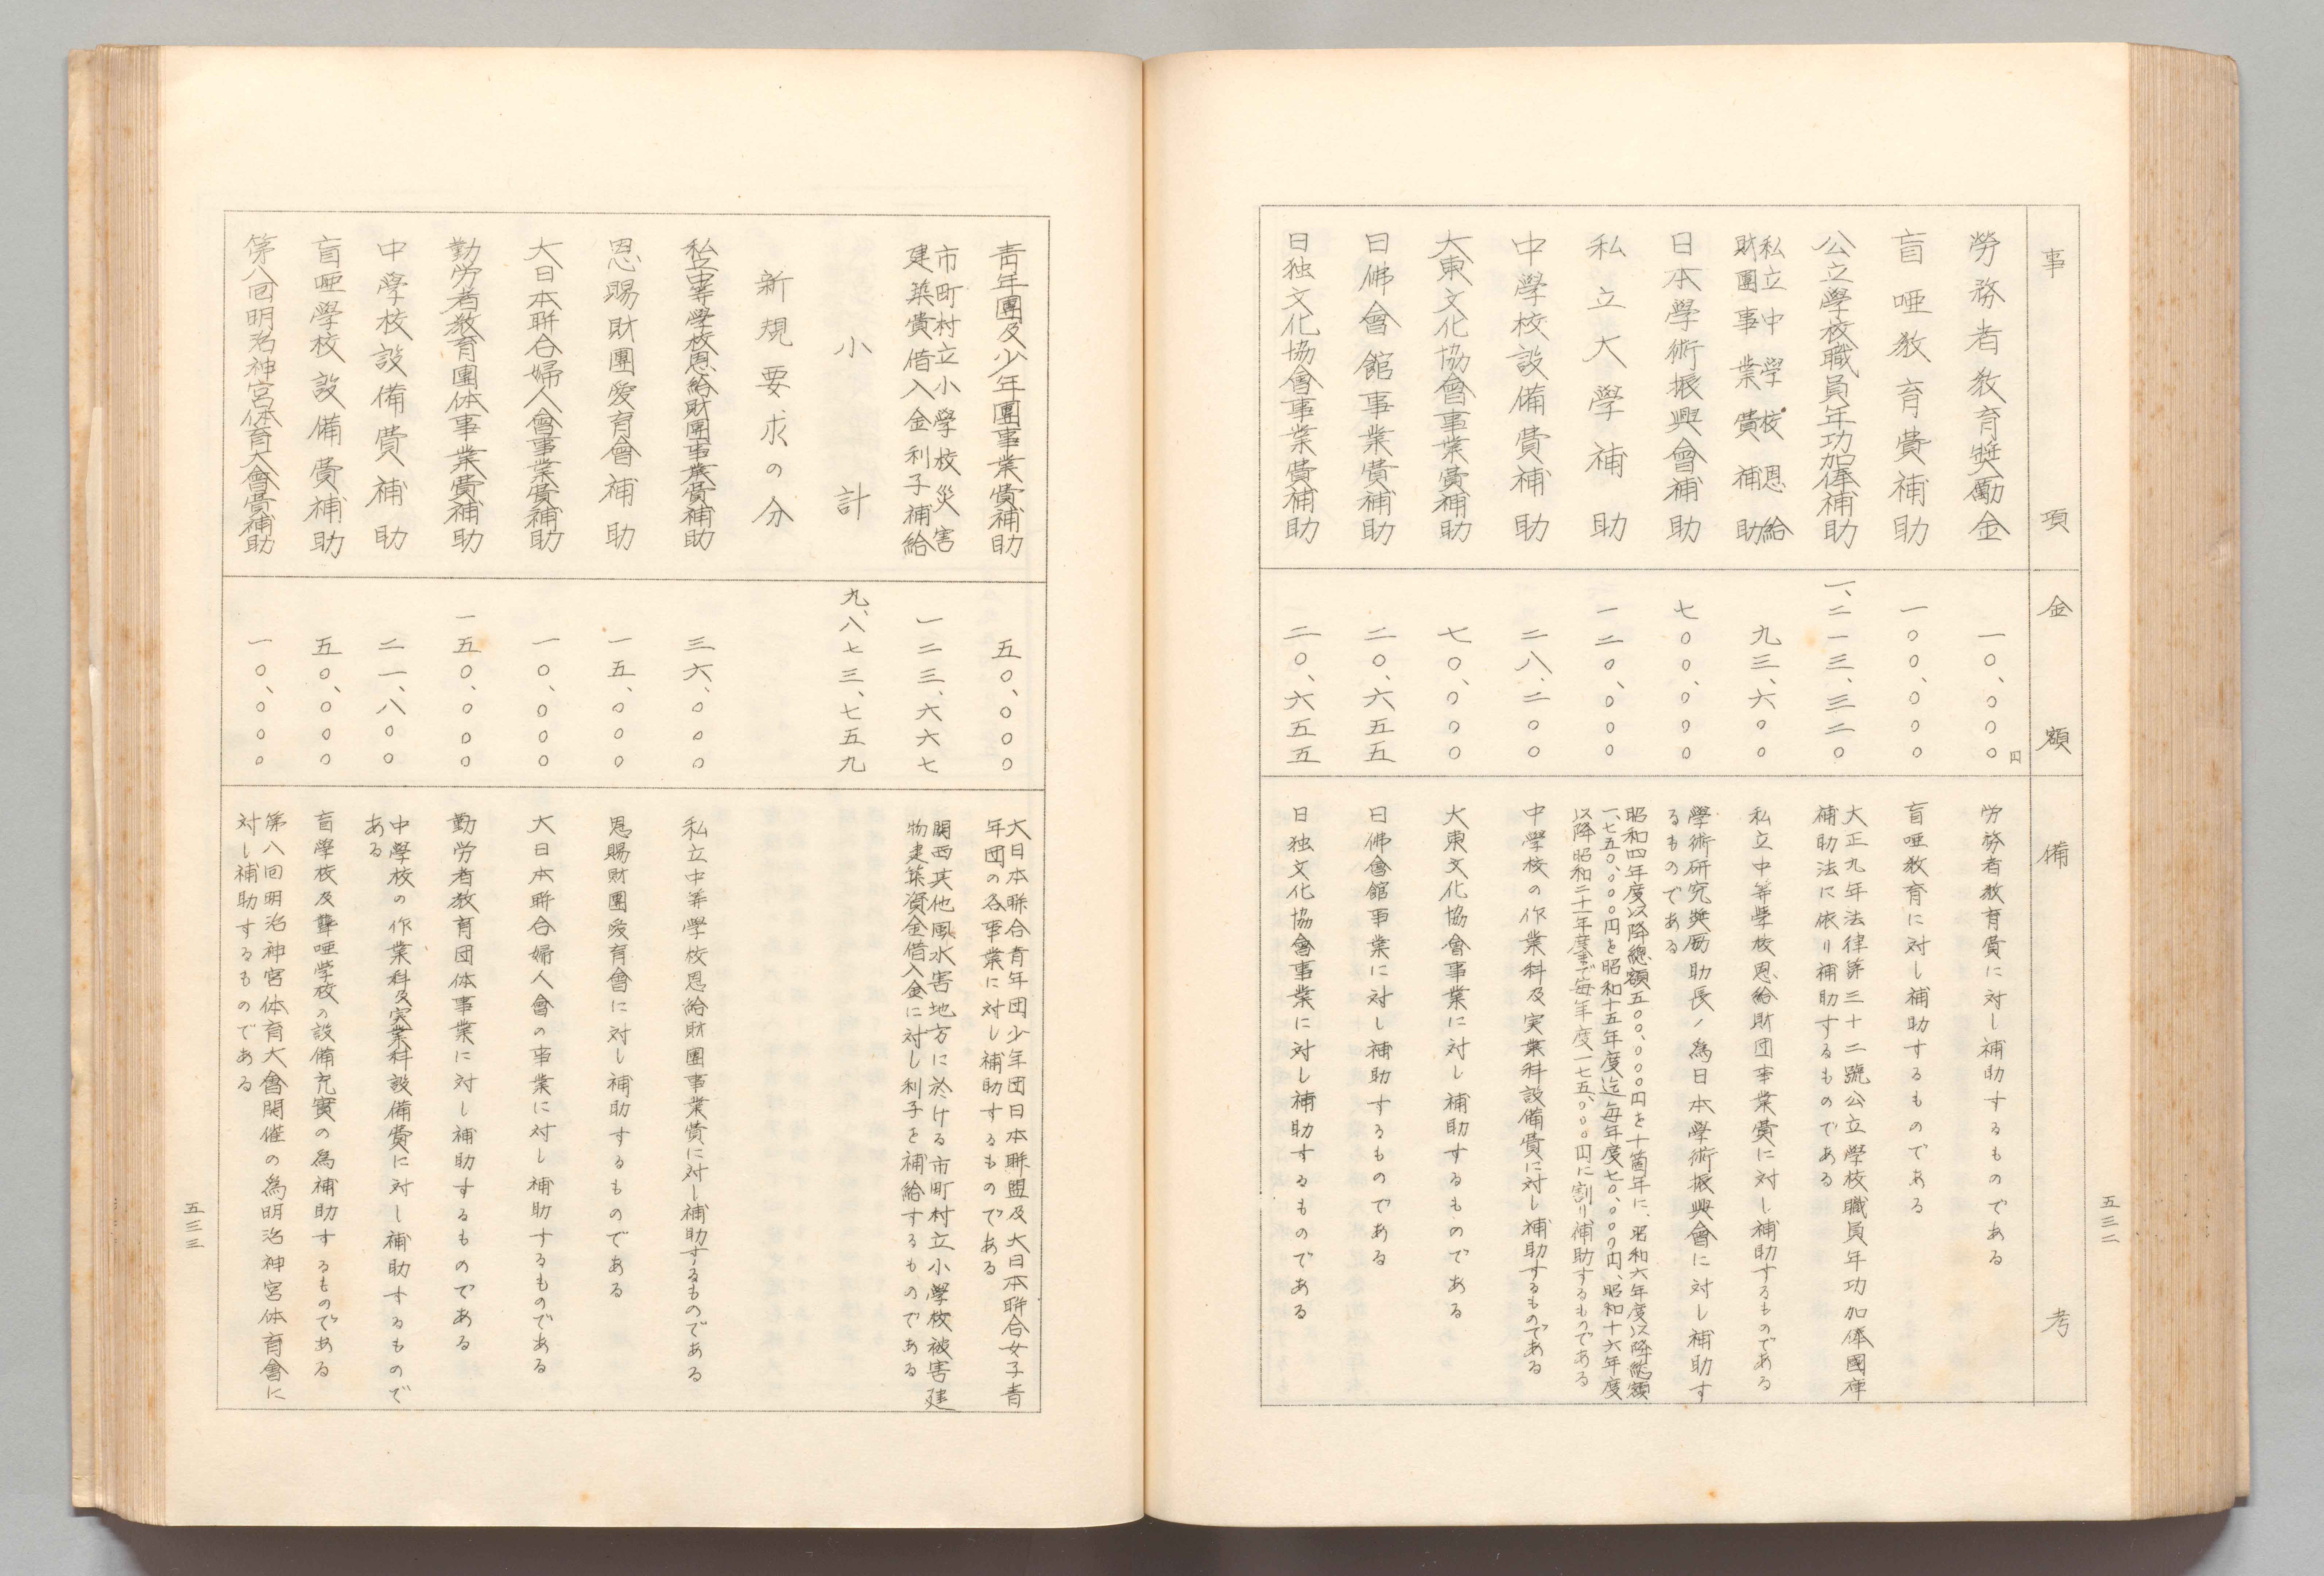 事項
金額
備考
勞務者教育奬勵金
一〇、〇〇〇円
労務者教育費に対し補助するものである
盲唖教育費補助
一〇〇、〇〇〇
盲唖教育に対し補助するものである
公立學校職員年功加俸補助
一、二一三、三二〇
大正九年法律第三十二號公立學校職員年功加俸國庫
補助法に依り補助するものである
私立中学校恩給
財團事業費補助
九三、六〇〇
私立中等學校恩給財団事業費に対し補助するものである
日本學術振興會補助
七〇〇、〇〇〇
學術研究奬励助長ノ為日本學術振興會に対し補助す
るものである
私立大學補助
一二〇、〇〇〇
昭和四年度以降總額五〇〇、〇〇〇円を十箇年に、昭和六年度以降總額
一、七五〇、〇〇〇円を昭和十五年度迄毎年度七〇、〇〇〇円、昭和十六年度
以降昭和二十一年度まで毎年度一七五、〇〇〇円に割り補助するものである
中學校設備費補助
二八、二〇〇
中學校の作業科及実業科設備費に対し補助するものである
大東文化協會事業費補助
七〇、〇〇〇
大東文化協會事業に対し補助するものである
日佛會館事業費補助
二〇、六五五
日佛會館事業に対し補助するものである
日独文化協會事業費補助
二〇、六五五
日独文化協會事業に対し補助するものである
五三二
青年團及少年團事業費補助
五〇、〇〇〇
大日本聯合青年団少年団日本聯盟及大日本聯合女子青
年団の各事業に対し補助するものである
市町村立小學校災害
建築費借入金利子補給
一二三、六六七
関西其他風水害地方に於ける市町村立小學校被害建
物建築資金借入金に対し利子を補給するものである
小計
九、八七三、七五九
新規要求の分
私立中等學校恩給財團事業費補助
三六、〇〇〇
私立中等學校恩給財團事業費に対し補助するものである
恩賜財團愛育會補助
一五、〇〇〇
恩賜財團愛育會に対し補助するものである
大日本聯合婦人會事業費補助
一〇、〇〇〇
大日本聯合婦人會の事業に対し補助するものである
勤労者教育團体事業費補助
一五〇、〇〇〇
勤労者教育団体事業に対し補助するものである
中學校設備費補助
二一、八〇〇
中學校の作業科及実業科設備費に対し補助するもので
ある
盲唖學校設備費補助
五〇、〇〇〇
盲學校及聾唖学校の設備充實の為補助するものである
第八回明治神宮体育大會費補助
一〇、〇〇〇
第八回明治神宮体育大會開催の為明治神宮体育會に
対し補助するものである
五三三